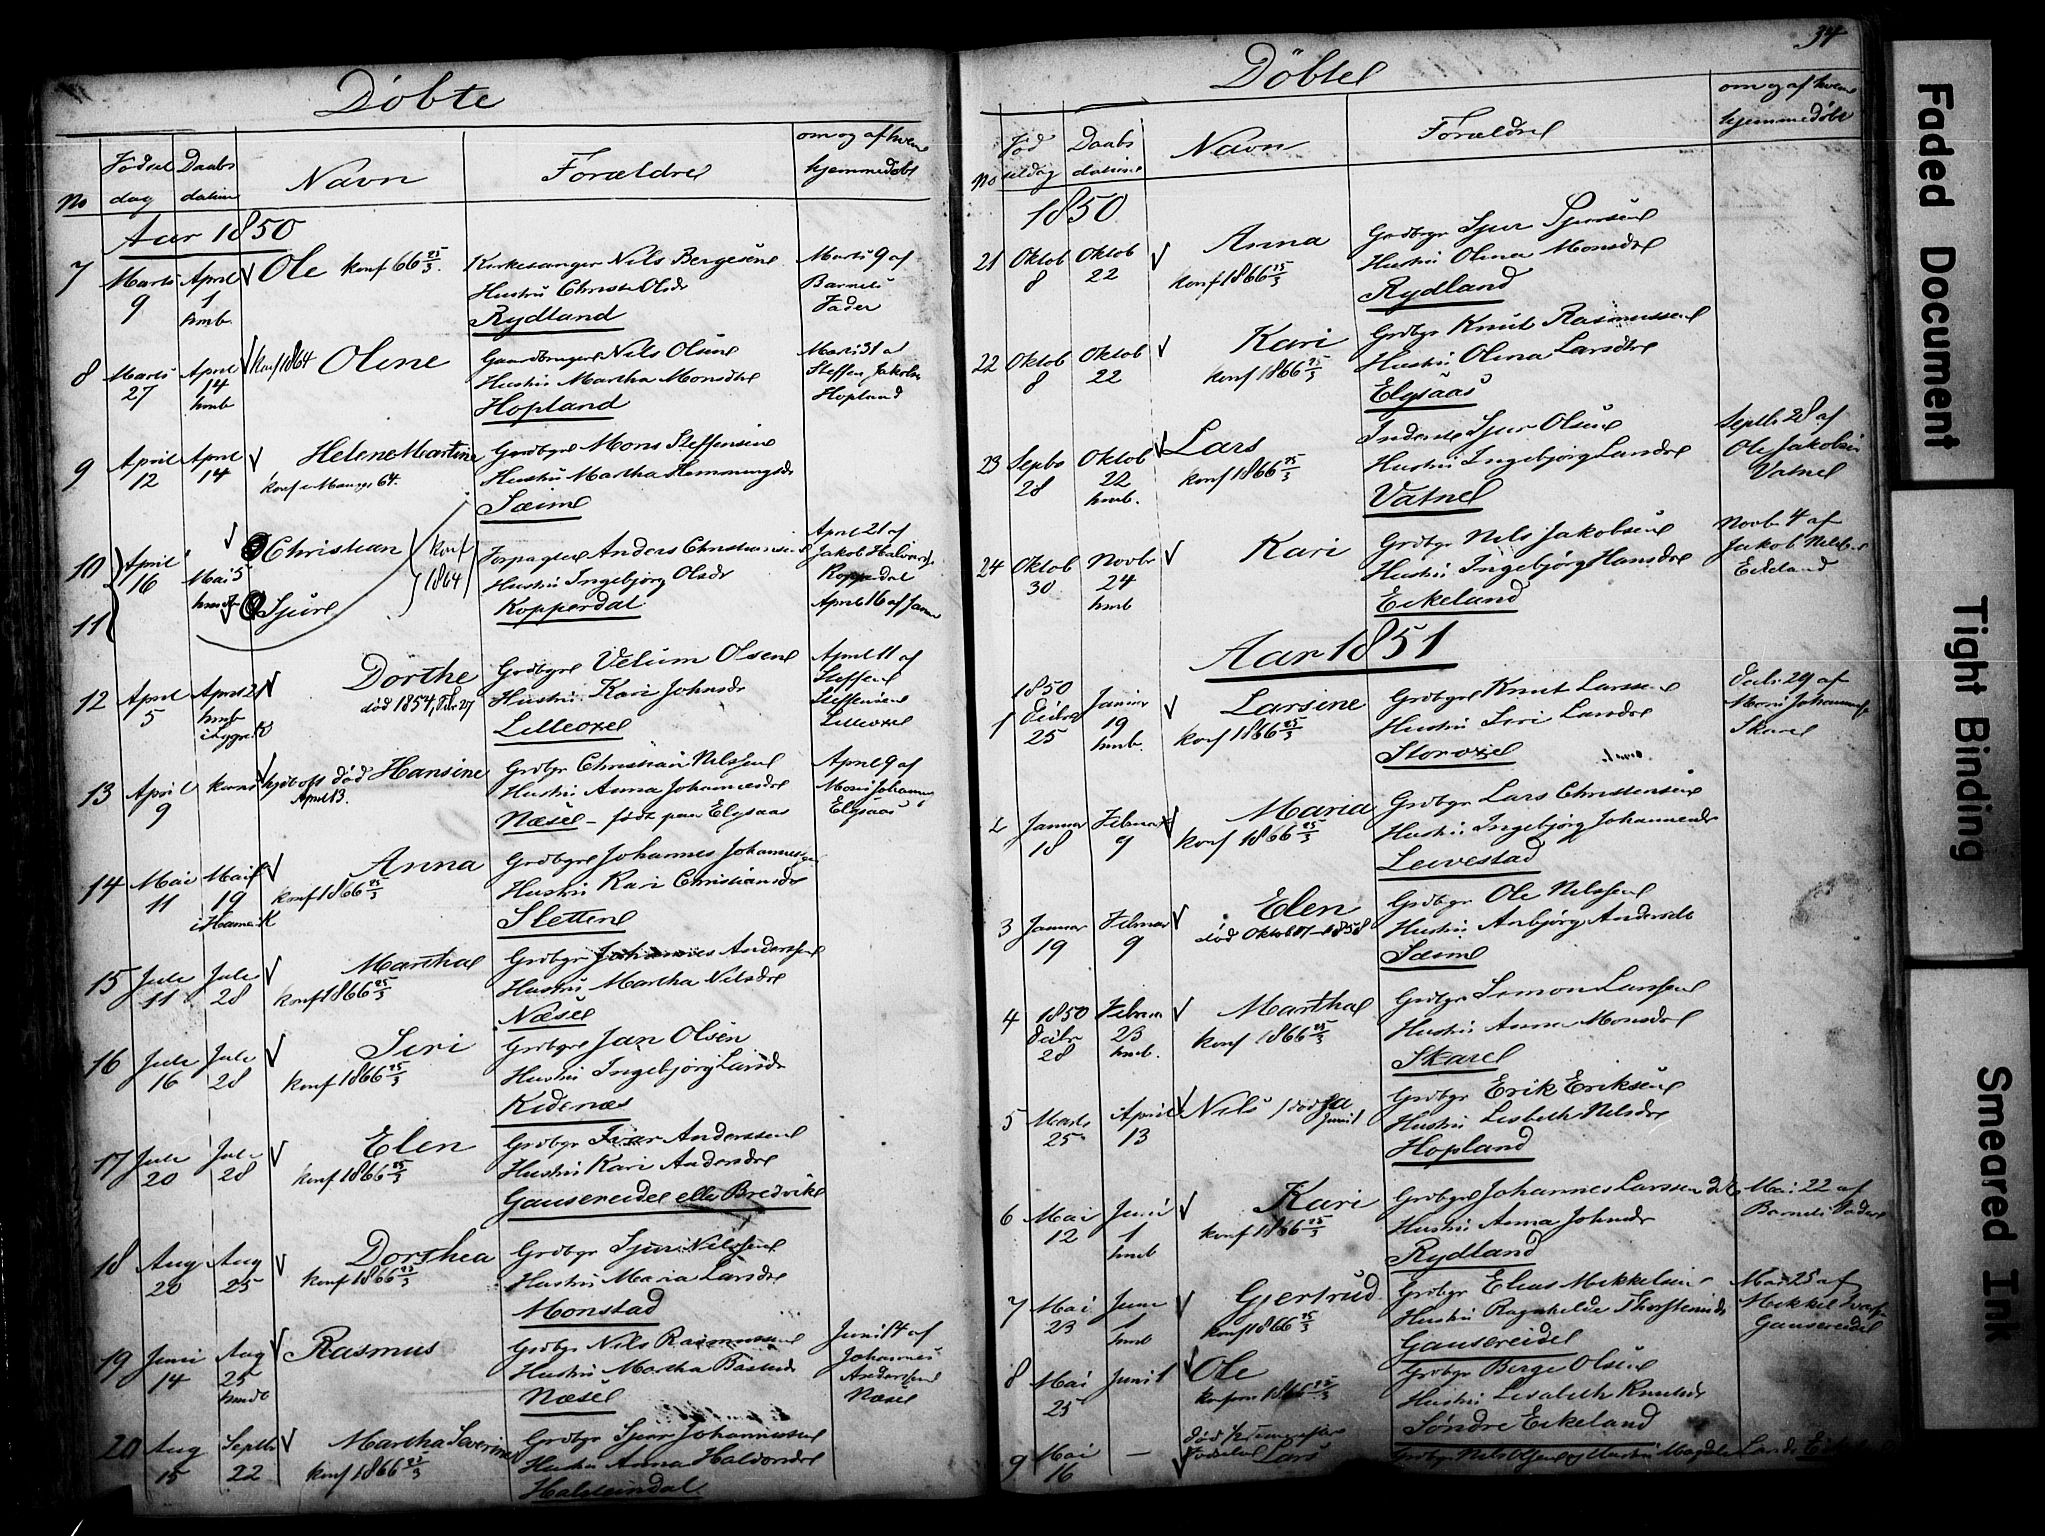 Döbte
No
Födsel
dag
Daabs
datum
Navn
Forældre
om og af hvem
hjemmedöbt
Aar 1850
7 Marts 9 April 1 hmb. Ole konf 66 25/3.
Kirkesanger Nils Bergesens
Hustru Christi Olsdr
Rydland
Marts 9 af
Barnets
Fader
8 Marts 27 April 14 hmb konf 1864 Oline
Gaardbruger Nils Olsens
Hustru Martha Monsdtr
Hopland
Marts 31 af
Steffen Jakobs
Hopland
9 April 12 April 14 Helene Martine
konf i Mange 64.
Grdbgr Mons Steffensens
Hustru Martha Hemmingsdr
Sæim
10 April 16 Mai 5 Christian konf 1864
11 Sjur
Forpagter Anders Christiansens
Hustru Ingebjörg Olsdr
Kopperdal
April 21 af
Jakob Halvors
Kopperdal
April 16 af samme
12 April 5 April 21 hmb Dorthe
död 1854, Febr 27
Grdbgr Velum Olsens
Hustru Kari Johnsdr
Lilleoxel
April 11 af
Steffen
Steffensen
Lilleoxel
13 April 9 död Hansine
April 13.
Grdbgr Christian Nilssens
Hustru Anna Johannesdr
Næse – födt paa Elysaas
April 9 af
Mons Johannes
Elysaas
14 Mai 11 Mai 19 i Hame K Anna
konf 1866 25/3
Grdbgr Johannes Johannes
Hustru Kari Christiansdr
Sletten
15 Juli 11 Juli 28 Martha
konf 1866 25/3
Grdbgr Johannes Anderssens
Hustru Martha Nilsdr
Næse
16 Juli 16 Juli 28 Siri
konf 1866 25/3
Grdbgr Jan Olsen
Hustru Ingebjörg Larsdr
Kidenæs
17 Juli 20 Juli 28 Elen
konf 1866 25/3
Grdbgr Ivar Anderssens
Hustru Kari Andersdr
Gausereidet eller Bredvike
18 Aug 20 Aug 25 Dorthea
konf 1866 25/3
Grdbgr Sjur Nilssens
Hustru Maria Larsdr
Monstad
19 Juni 14 Aug 25 hmdb Rasmus
Grdbgr Nils Rasmussens
Hustru Martha Bastisdr
Næse
Juni 14 af
Johannes
Anderssens
Næse
20 Aug 15 Septb 22 Martha Severine
konf 1866 25/3
Grdbgr Sjur Johannessens
Hustru Anna Haldorsdr
Halsteindal
34
Döbte
No
Födselsdag
Daabs
datum
Navn
Forældre
om og af hvem
hjemmedöbt
1850
21 Oktob 8 Oktob 22 Anna
konf 1866 25/3
Grdbgr Sjur Sjursens
Hustru Olina Monsdr
Rydland
22 Oktob 8 Oktob 22 Kari
konf 1866 25/3
Grdbgr Knut Rasmussens
Hustru Olina Larsdtr
Elysaas
23 Septb 28 Oktob 22 hmb. Lars
konf 1866 25/3
Inderst Sjur Olsens
Hustru Ingebjörg Larsdr
Vatne
Septb. 28 af
Ole Jakobsen
Vatne
24 Oktob 30 Novbr 24 hmb Kari
Grdbgr Nils Jakobsens
Hustru Ingebjörg Hansdtr
Eikeland
Novbr 4 af
Jakob Nilss
Eikeland
Aar 1851
1 1850 Decbr 25 Januar 19 hmb. Larsine
konf 1866 25/3
Grdbgr Knut Larssens
Hustru Siri Larsdr
Storoxel
Decb. 29 af
Mons Johannes
Skare
2 Januar 18 Februar 9 Maria
konf 1866 25/3
Grdbgr Lars Christensens
Hustru Ingebjörg Johannesdr
Leivestad
3 Januar 19 Februar 9 Elen
död Oktob 17 – 1858
Grdbgr Ole Nilssens
Hustru Anbjörg Andersdtr
Sæim
4 1850 Decbr 28 Februar 23 hmb. Martha
konf 1866 25/3
Grdbgr Simon Larssens
Hustru Anna Monsdr
Skare
5 Marts 25 April 13 Nils död Juni 1
Grdbgr Erik Eriksens
Hustru Lisbeth Nilsdr
Hopland
6 Mai 12 Juni 1 hmb Kari
konf 1866 25/3
Grdbgr Johannes Larssen
Hustru Anna Johnsdr
Rydland
Mai 22 af
Barnets Fader
7 Mai 23 Juni 1 hmb Gjertrud
konf 1866 25/3
Grdbgr Elias Mikkelsens
Hustru Ragnhilde Thorsteinsdr
Gausereidet
Mai 25 af
Mikkel Ivers
Gausereidet
8 Mai 25 Juni 1 Ole
konf 1866 25/3
Grdbgr Berge Olsens
Hustru Lisabeth Knutsdr
Söndre Eikeland
9 Mai 16 – Lars
Grdbgr Nils Olsen og Hustru Magdele Larsdr
Faded Document
Tight Binding
Smeared Ink